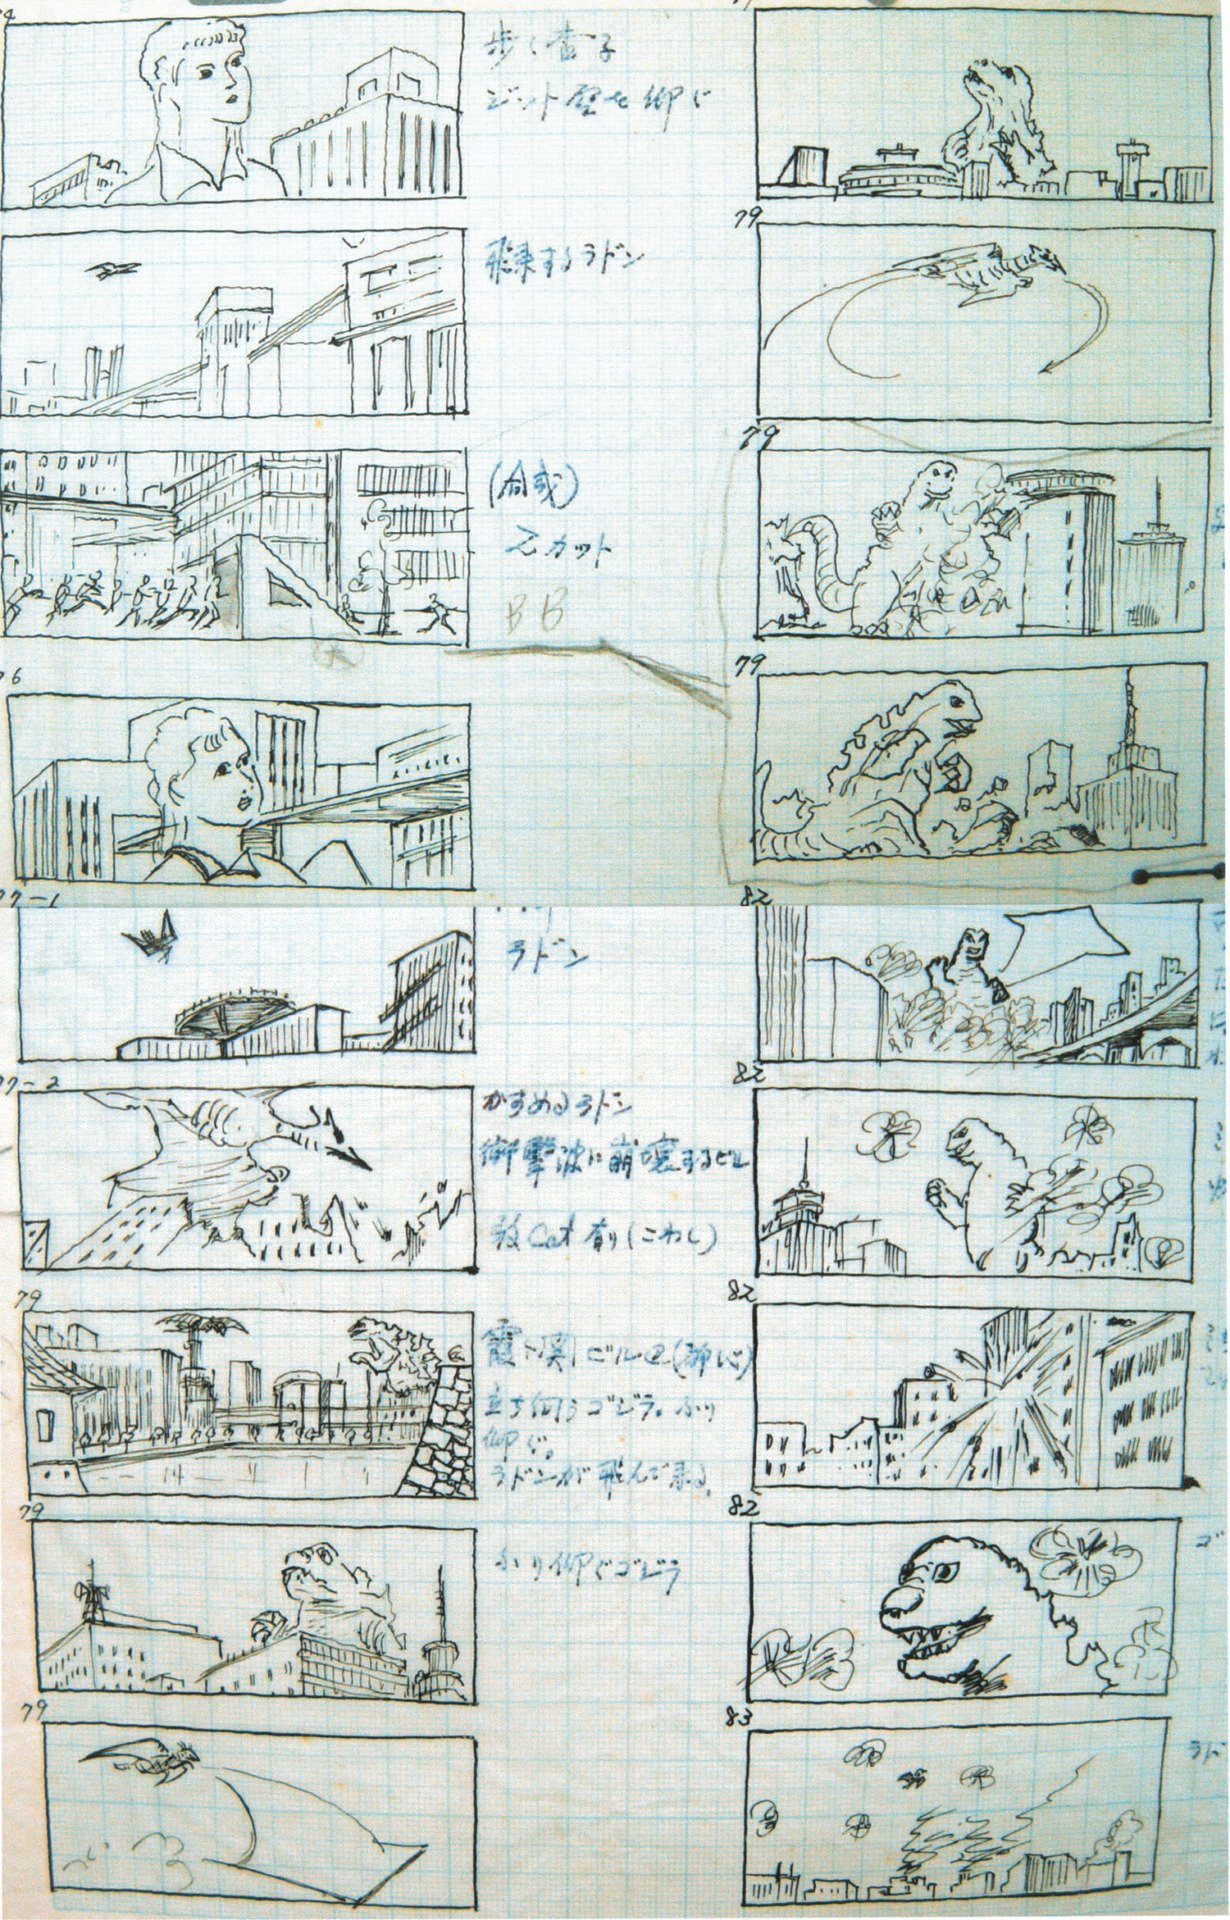 歩く杏子
ジット壁を仰ぐ
飛来するラドン
(合成)
2カット
BB
76
77-1
ラドン
77-2
かすめるラドン
衝撃波に崩壊するビル
数Cut有り(こわし)
79
霞ヶ関ビル
立ち向うゴジラ。ふり
仰ぐ。
ラドンが飛んで来る。
79
ふり仰ぐゴジラ
79
79
79
79
82
82
82
82
83